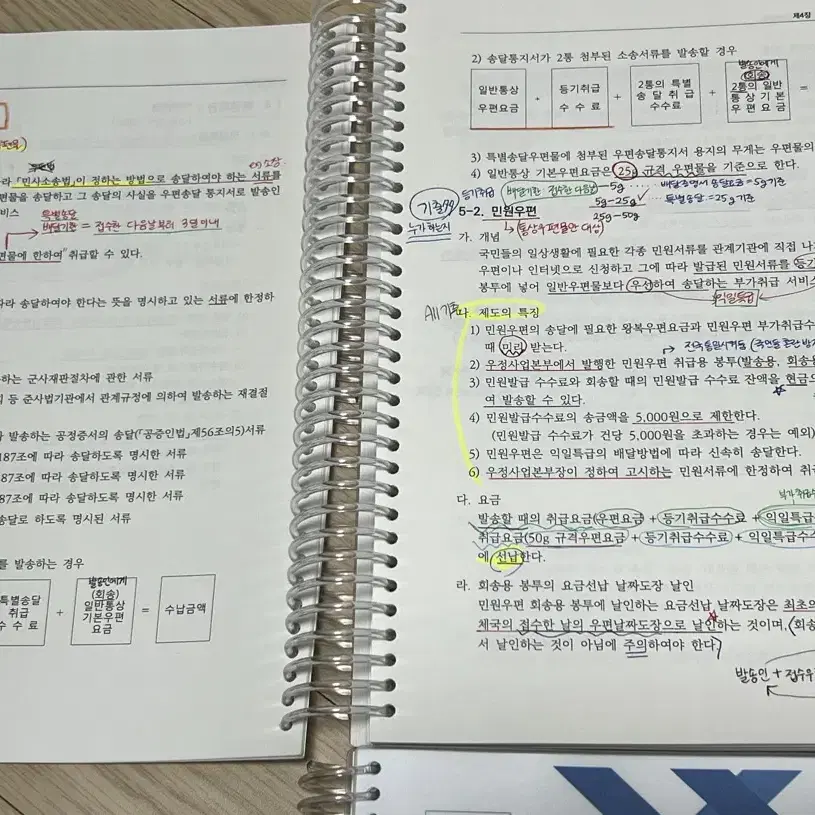 ex) 소장
라 「민사소송법」이 정하는 방법으로 송달하여야 하는 서류를
편물을 송달하고 그 송달의 사실을 우편송달 통지서로 발송인
비스
특별송달
배달기한 = 접수한 다음날부터 3일 이내
편물에 한하여" 취급할 수 있다.
따라 송달하여야 한다는 뜻을 명시하고 있는 서류에 한하
하는 군사재판절차에 관한 서류
 등 준사법기관에서 관계규정에 의하여 발송하는 재결절
 발송하는 공정증서의 송달(「공증인법」제56조의5)서류
187조에 따라 송달하도록 명시한 서류
87조에 따라 송달하도록 명시한 서류
87조에 따라 송달하도록 명시한 서류
송달로 하도록 명시된 서류
를 발송하는 경우
특별송달
취급
수 수 료
+
발송인에게
(회송)
일반통상
기본우편
요금
=
수납금액
제4장
2) 송달통지서가 2통 첨부된 소송서류를 발송할 경우
일반통상
우편요금
+
등기취급
수 수 료
+
2통의 특별
송 달 취 급
수수료
+
발송인에게
(회송)
2통의 일반
통 상 기 본
우 편 요 금
=
3) 특별송달우편물에 첨부된 우편송달통지서 용지의 무게는 우편물의
4) 일반통상 기본우편요금은 25g 규격 우편물을 기준으로 한다.
등기취급
배달기한 : 접수한 다음날
-5g ····· 배달증명서 송달요금 = 5g기준
5g-25g ✓ ···· 특별송달 = 25g 기준
25g-50g
누가 하는지
5-2. 민원우편
(통상우편물만 대상)
가. 개념
국민들의 일상생활에 필요한 각종 민원서류를 관계기관에 직접 나
우편이나 인터넷으로 신청하고 그에 따라 발급된 민원서류를 등기
봉투에 넣어 일반우편물보다 우선하여 송달하는 부가취급 서비스
익일특급
나. 제도의 특징
1) 민원우편의 송달에 필요한 왕복우편요금과 민원우편 부가취급수
때 미리 받는다.
2) 우정사업본부에서 발행한 민원우편 취급용 봉투(발송용, 회송용
3) 민원발급 수수료와 회송할 때의 민원발급 수수료 잔액을 현금으
여 발송할 수 있다.
4) 민원발급수수료의 송금액을 5,000원으로 제한한다.
(민원발급 수수료가 건당 5,000원을 초과하는 경우는 예외)
5) 민원우편은 익일특급의 배달방법에 따라 신속히 송달한다.
6) 우정사업본부장이 정하여 고시하는 민원서류에 한정하여 취급
다. 요금
부가취급수
발송할 때의 취급요금(우편요금 + 등기취급수수료 + 익일특급
취급요금(50g 규격우편요금 + 등기취급수수료 + 익일특급수수
에 선납한다.
라. 회송용 봉투의 요금선납 날짜도장 날인
민원우편 회송용 봉투에 날인하는 요금선납 날짜도장은 최초의
체국의 접수한 날의 우편날짜도장으로 날인하는 것이며, (회송
서 날인하는 것이 아님에 주의하여야 한다.)
발송인 + 접수우